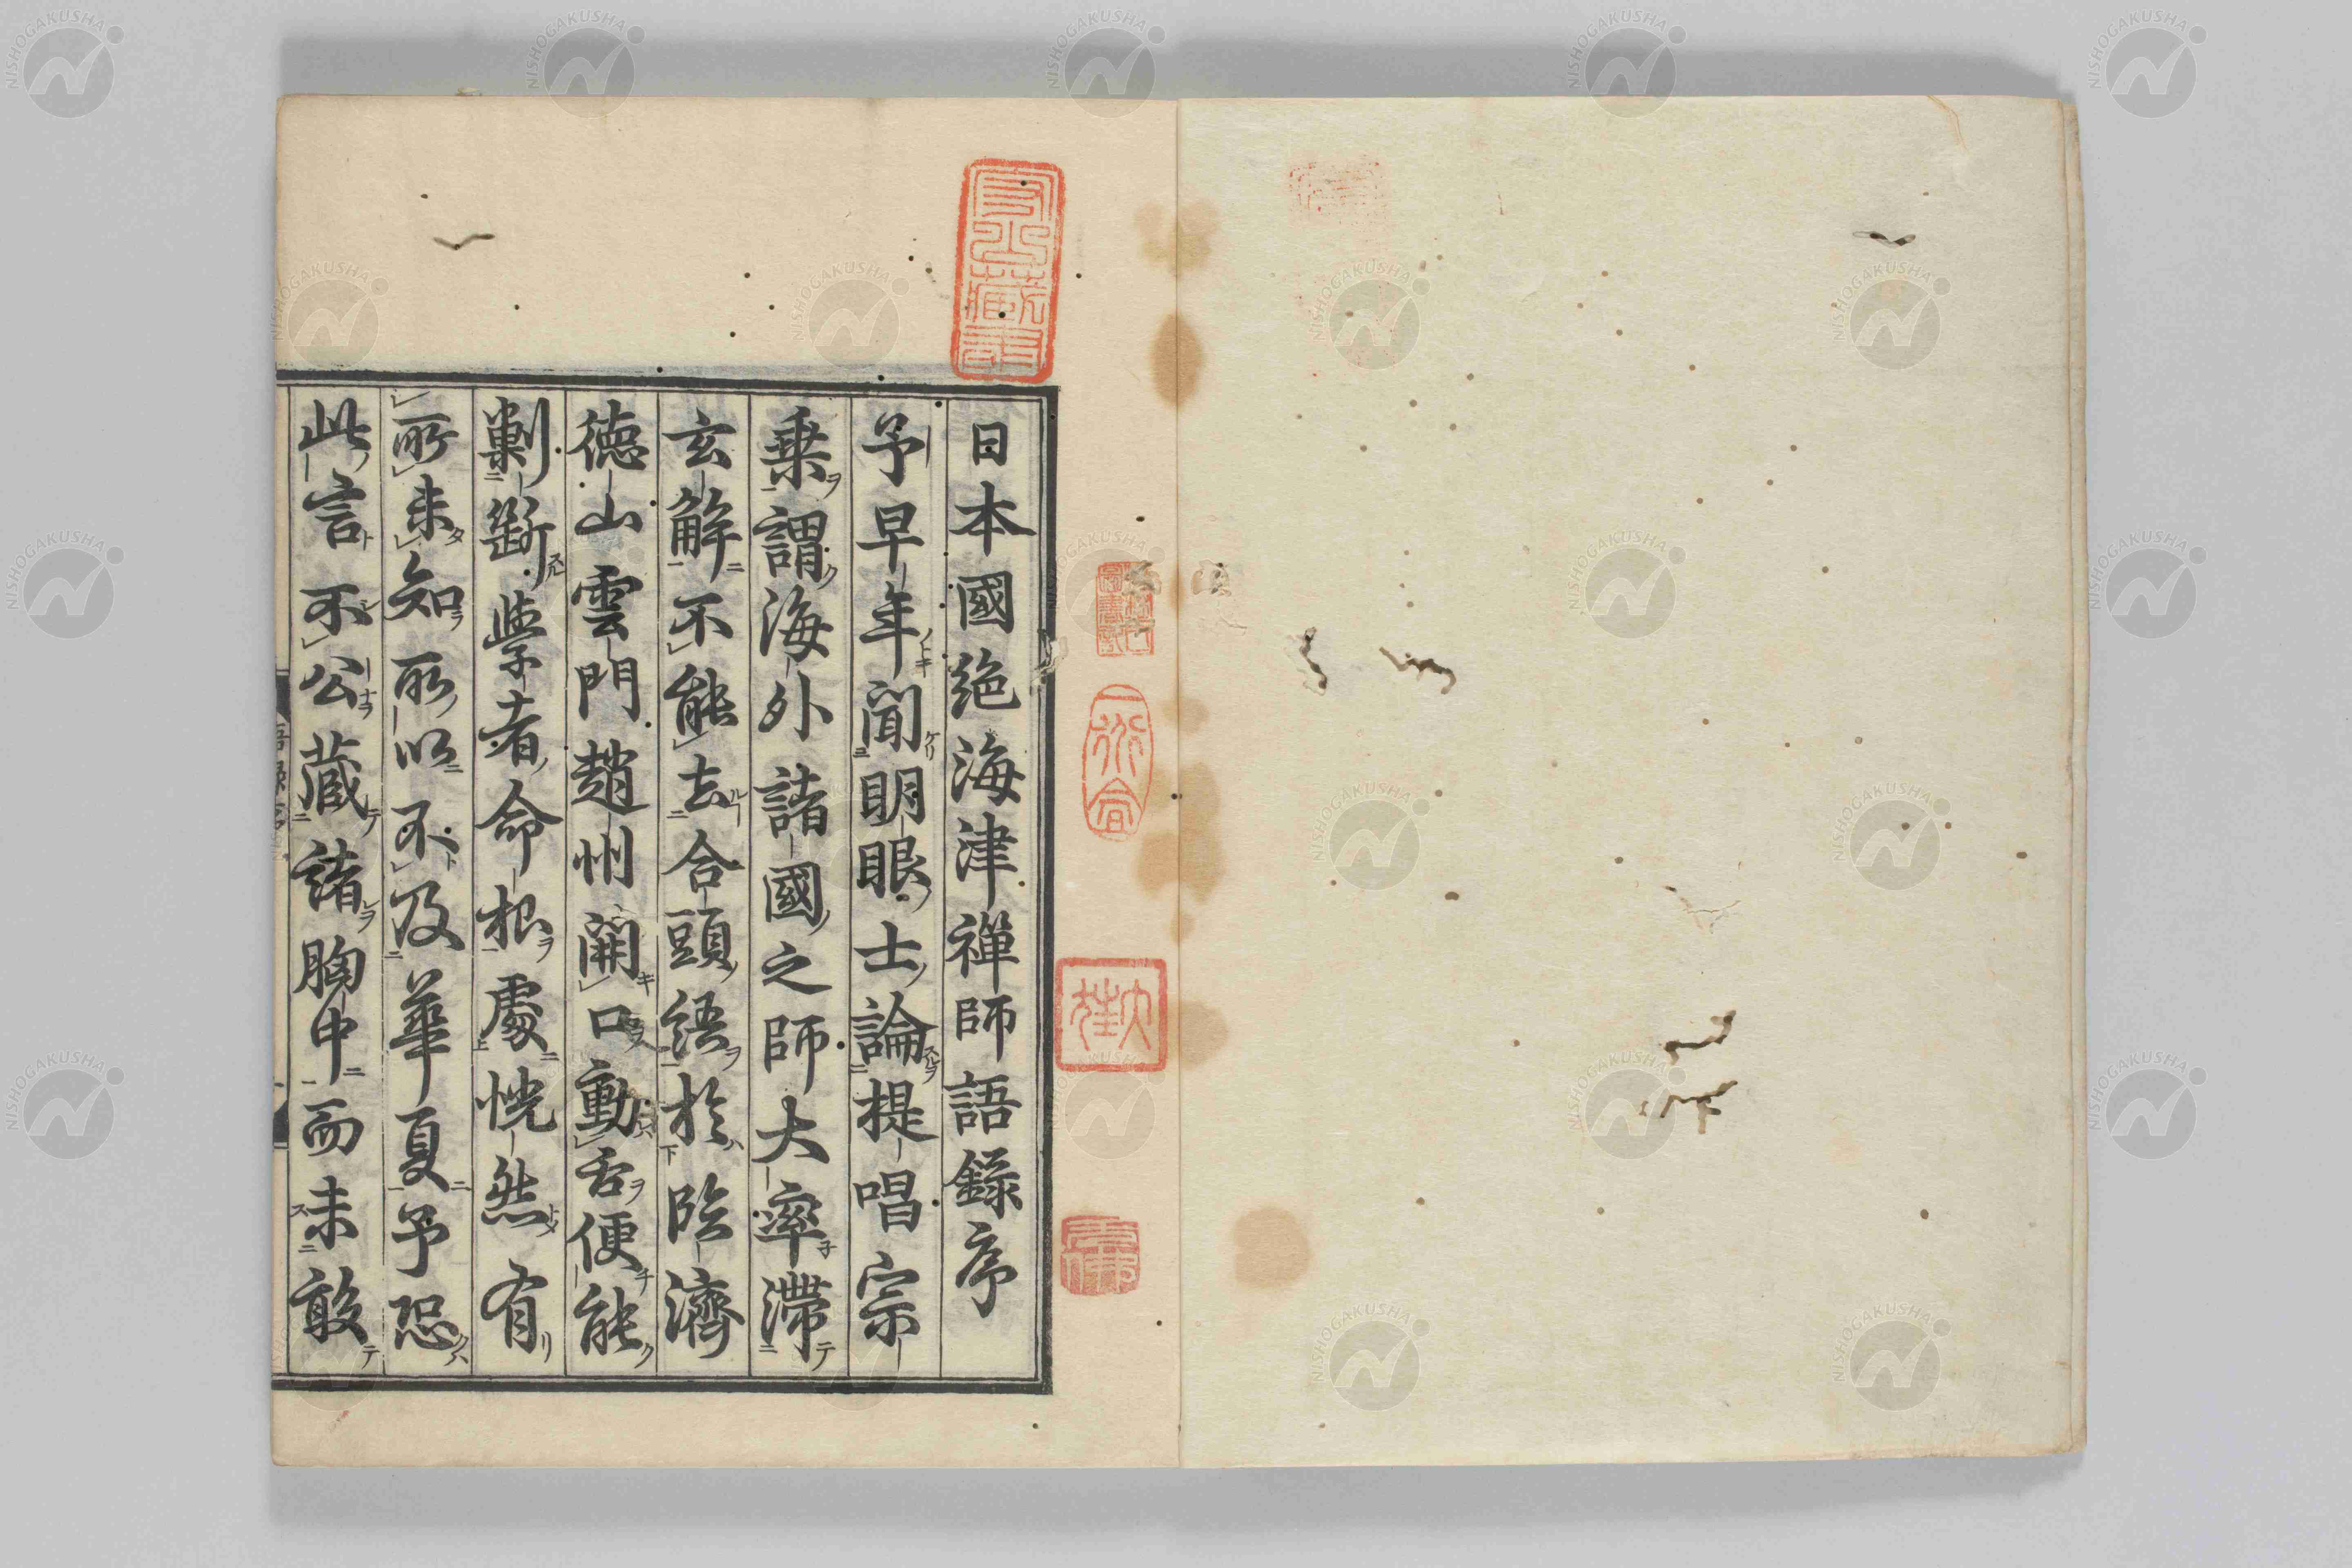 日本國絶海津禪師語錄序
予早年聞明眼士論提唱宗
乗謂海外諸國之師大率滯
玄解不能去合頭語於臨濟
德山雲門趙州開口動舌便能
剿斷學者命根處恍然有
所未知所以不及華夏予恐
此言不公蔵諸胸中而未敢